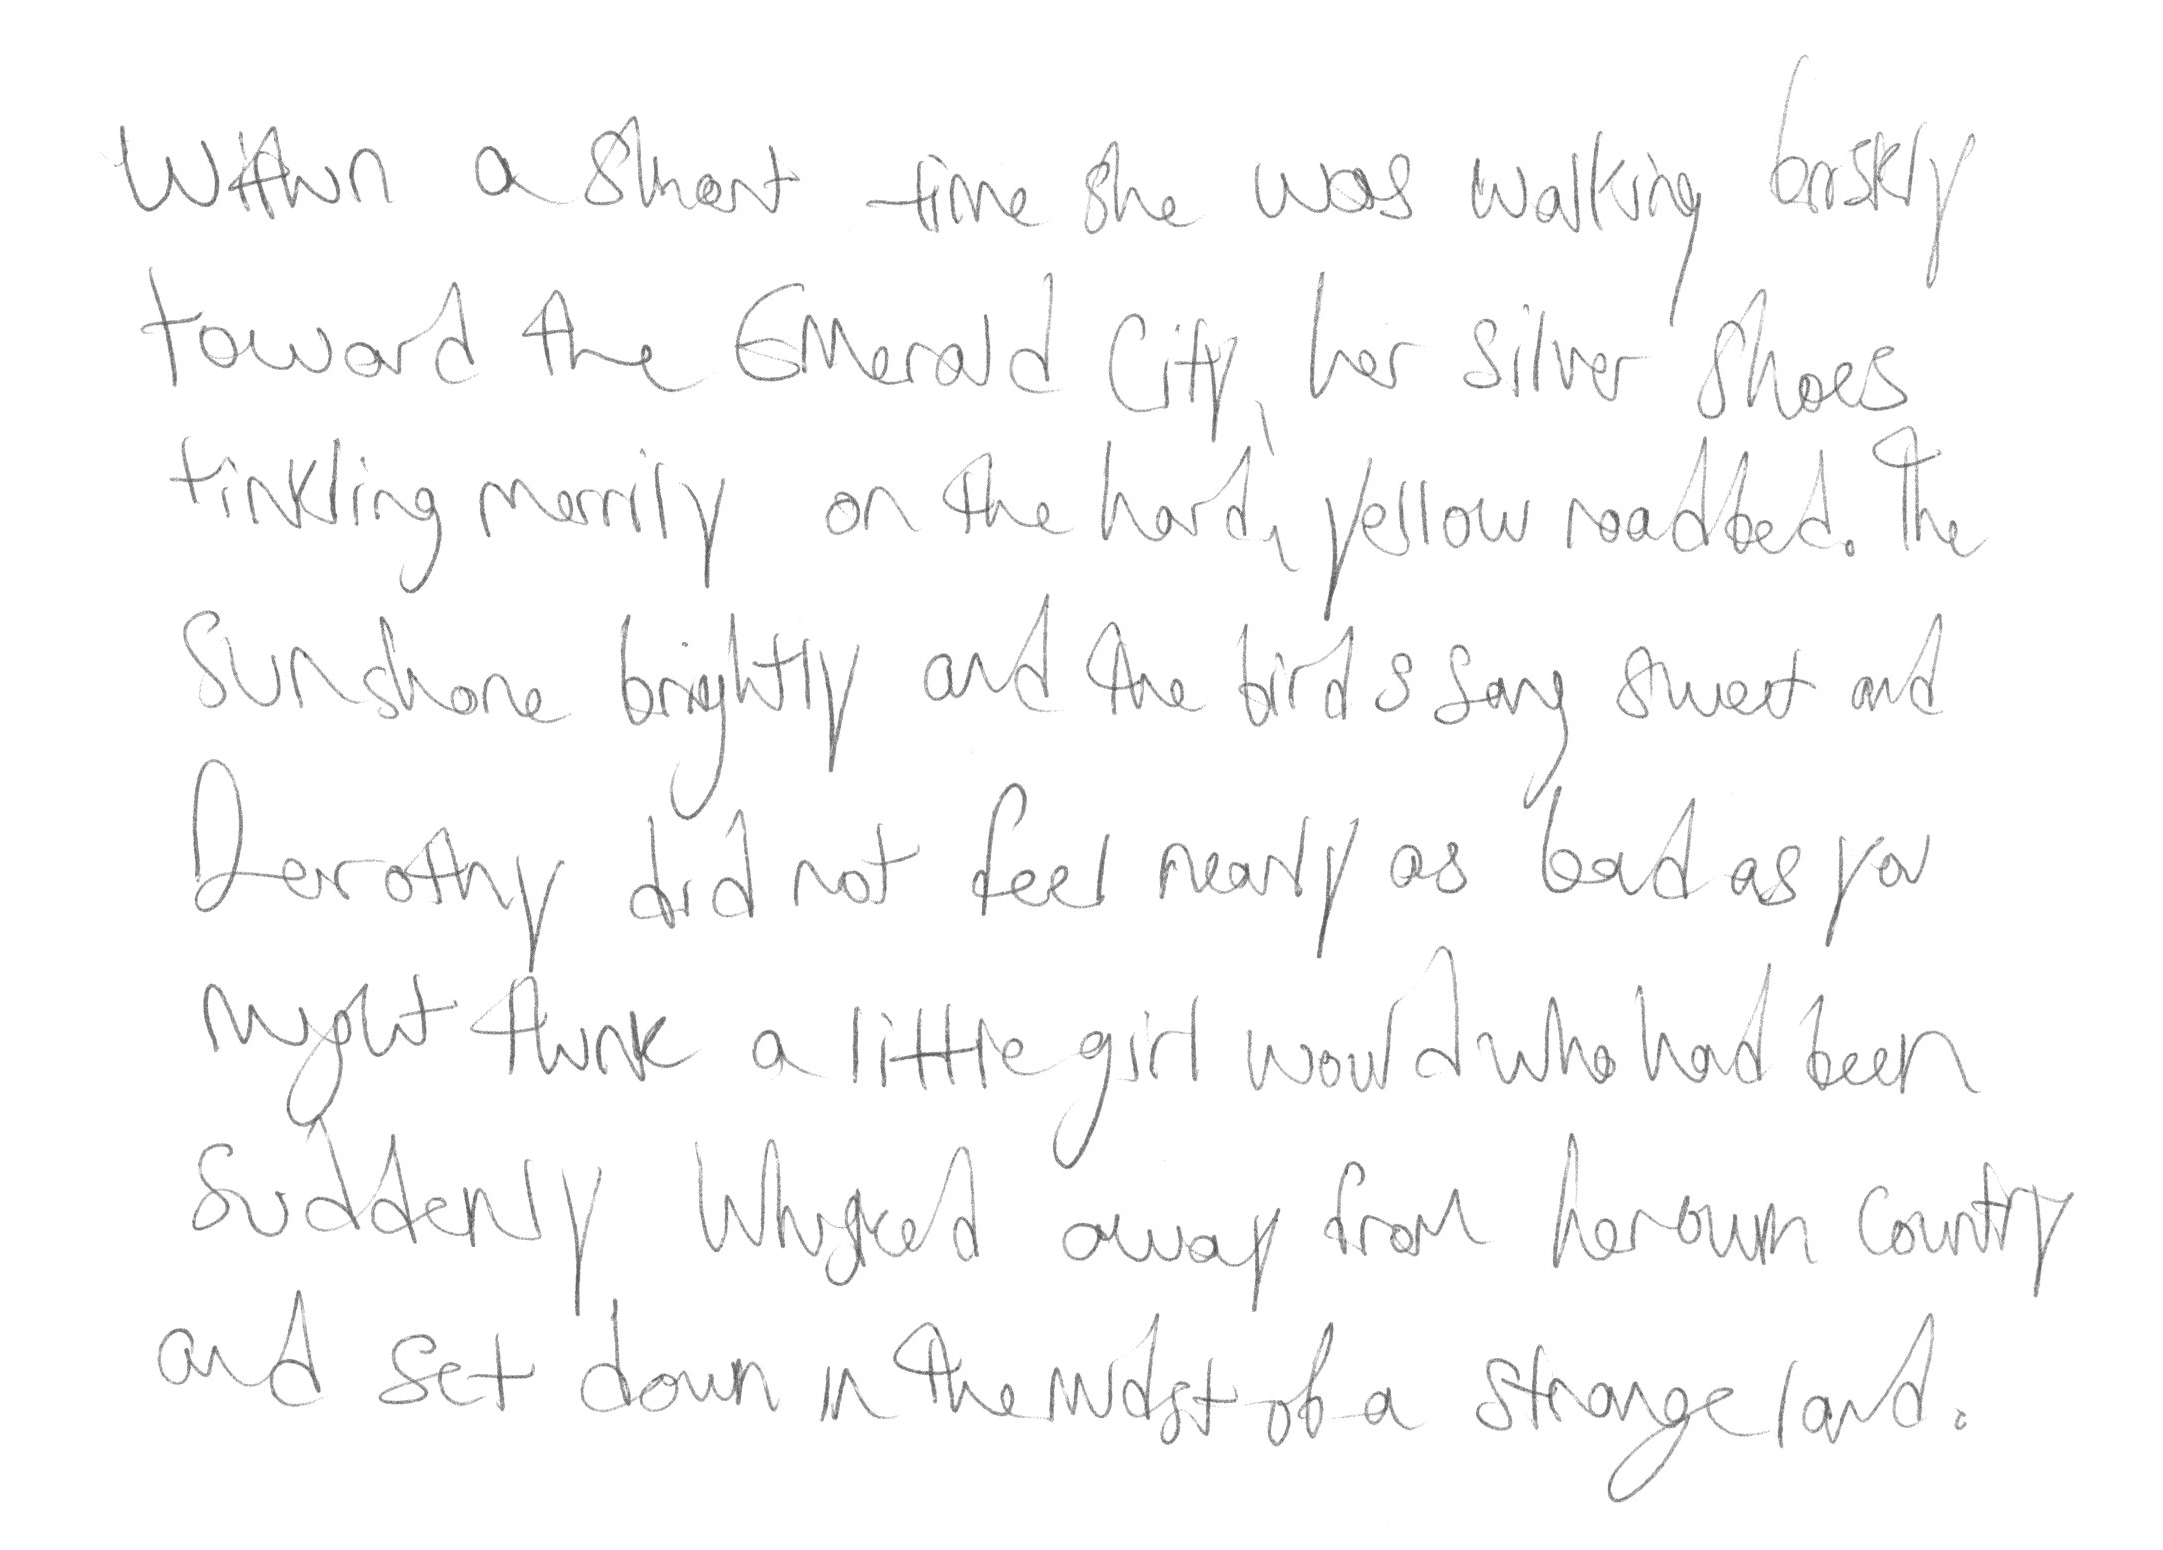 Within a short time she was walking briskly
toward the Emerald City, her silver shoes
tinkling merrily on the hard, yellow roadbed. The
sun shone brightly and the birds sang sweet and
Dorothy did not feel nearly as bad as you
might think a little girl would who had been
suddenly whisked away from her own country
and set down in the midst of a strange land.